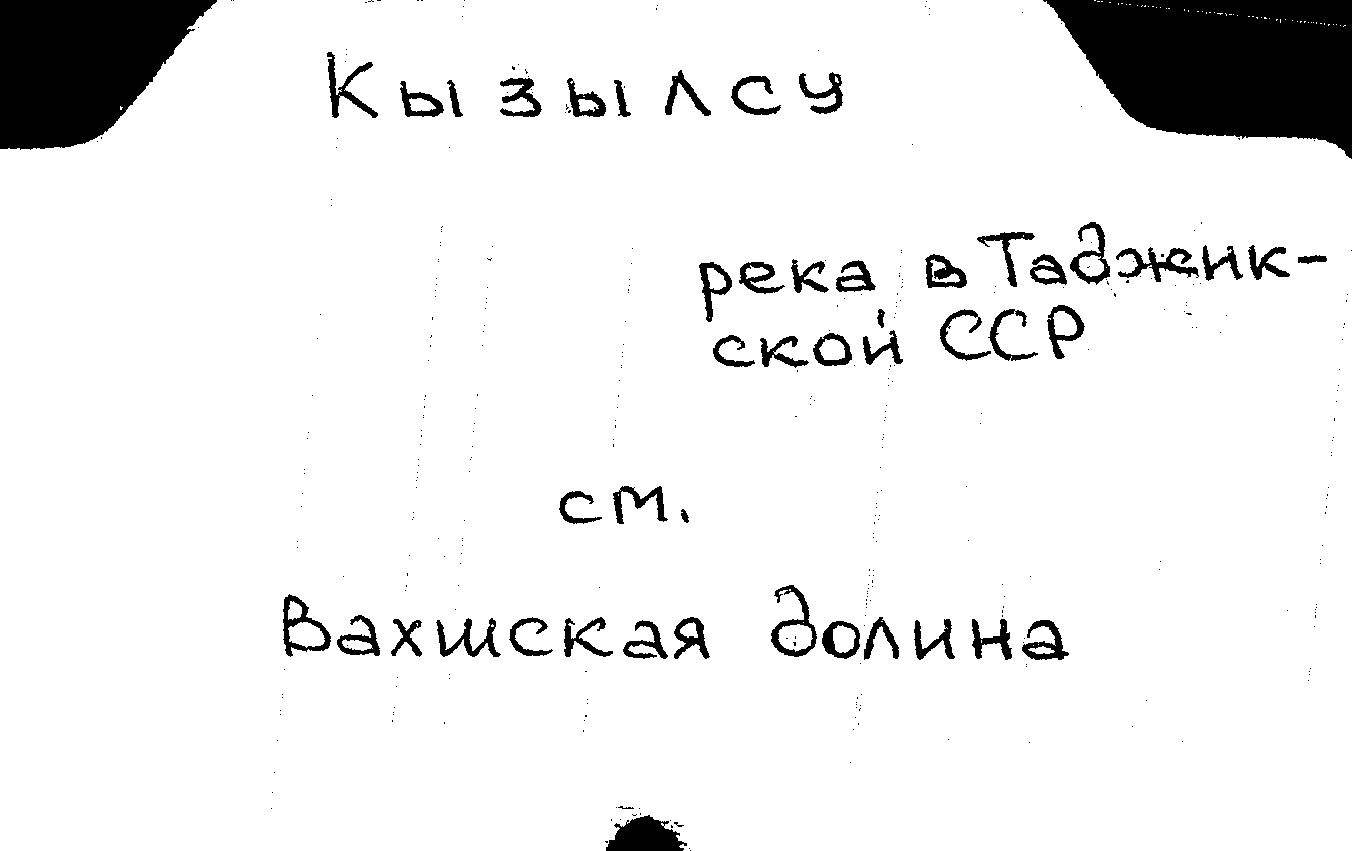 Кызылсу
река в Таджик-
ской ССР
см.
Вахшская долина